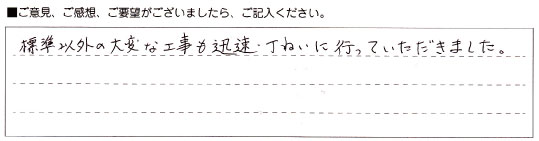 ■ご意見、ご感想、ご要望がございましたら、ご記入ください。
標準以外の大変な工事も迅速・丁ねいに行っていただきました。